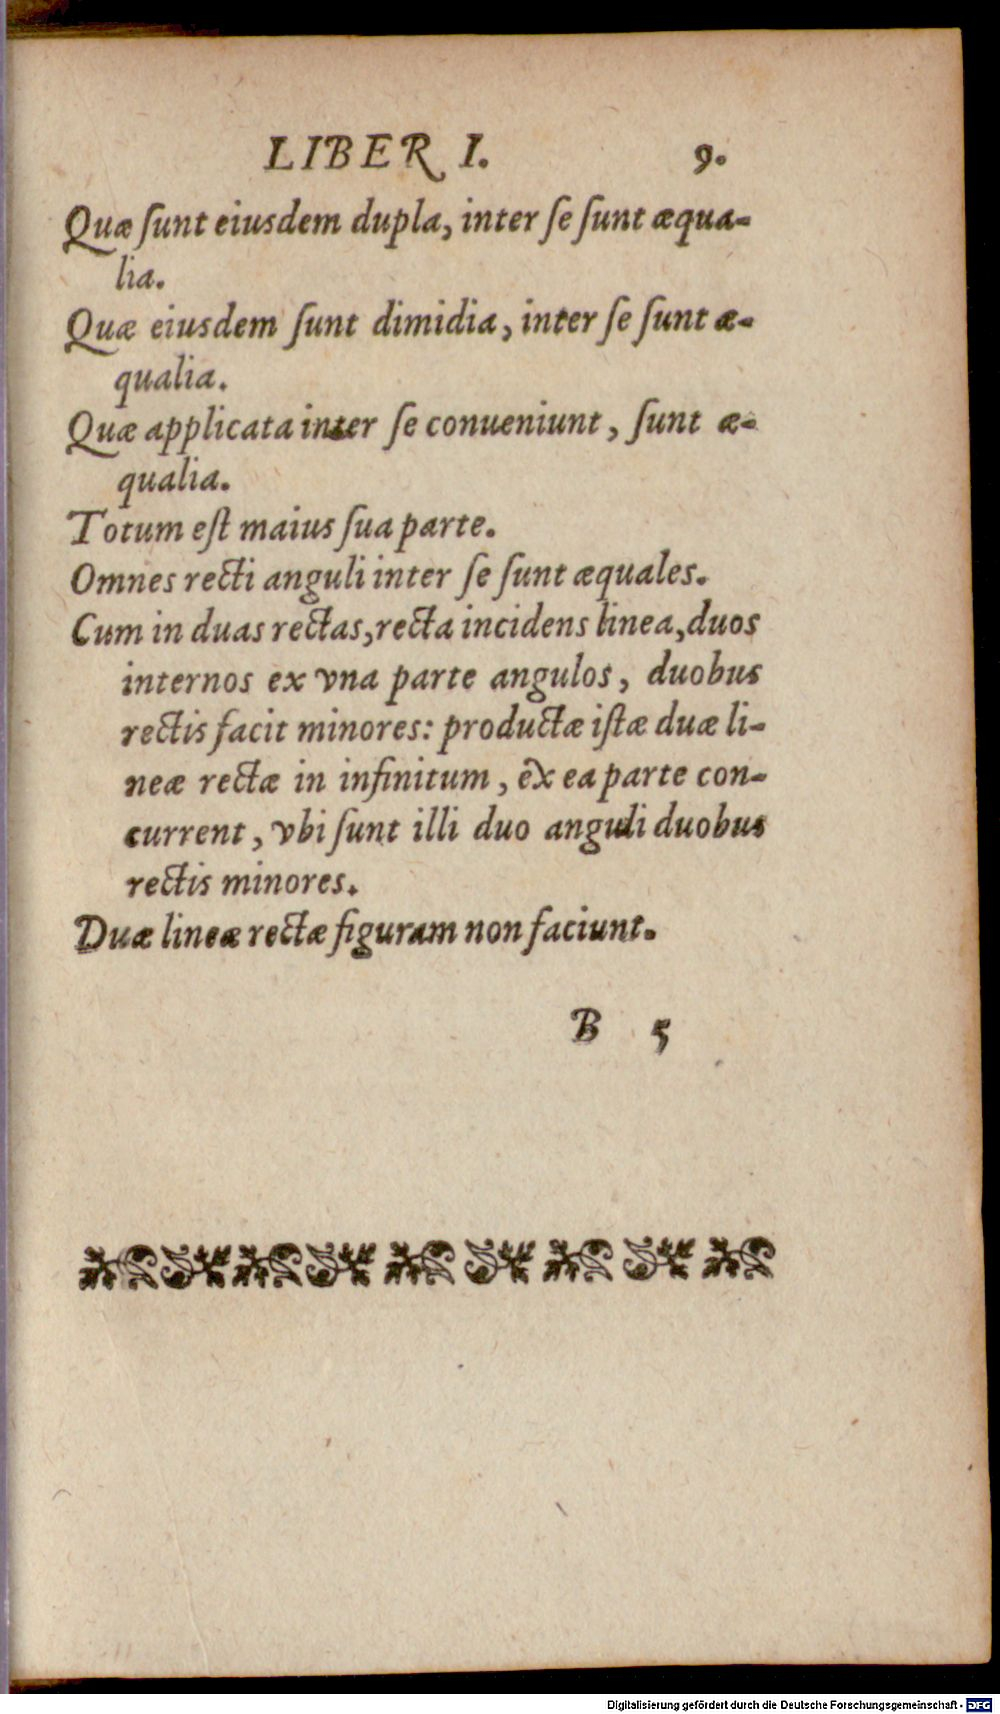 LIBER I. 9.
Quæ ſunt eiusdem dupla, inter ſe ſunt æqua-
lia.
Quæ eiusdem ſunt dimidia, inter ſe ſunt æ-
qualia.
Quæ applicata inter ſe conueniunt, ſunt æ-
qualia.
Totum eſt maius ſua parte.
Omnes recti anguli inter ſe ſunt æquales.
Cum in duas rectas, recta incidens linea, duos
internos ex vna parte angulos, duobus
rectis facit minores: productæ iſtæ duæ li-
neæ rectæ in infinitum, ex ea parte con-
current, vbi ſunt illi duo anguli duobus
rectis minores.
Duæ lineæ rectæ figuram non faciunt.
B 5
Digitalisierung gefördert durch die Deutsche Forschungsgemeinschaft - DFG